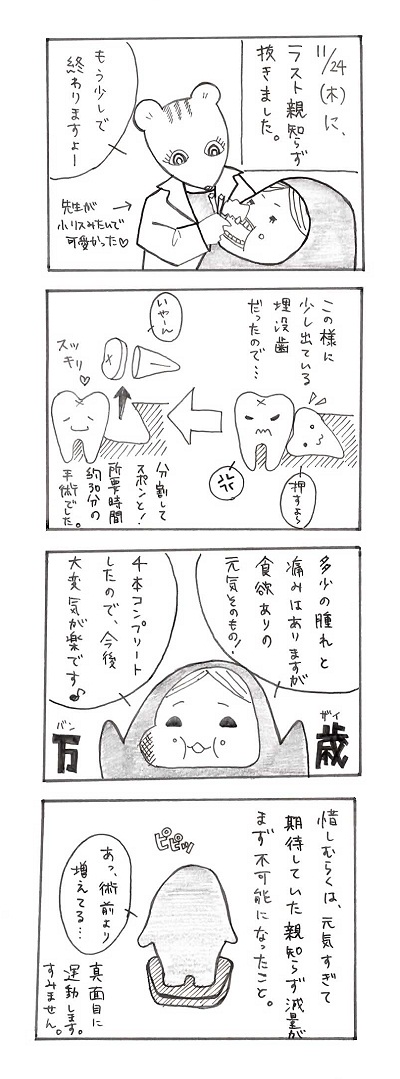 11/24(木)に、
ラスト親知らず
抜きました。
もう少しで
終わりますよー
先生が
小リスみたいで
可愛かった♡
この様に
少し出ている
埋没歯
だったので…
押すよ〜
いやーん
スッキリ♡
分割して
スポンと!
所要時間
約30分の
手術でした。
多少の腫れと
痛みはありますが
食欲ありの
元気そのもの!
4本コンプリート
したので、今後
大変気が楽です♪
バン
万
ザイ
歳
惜しむらくは、元気すぎて
期待していた親知らず減量が
まず不可能になったこと。
ピピッ
あっ、術前より
増えてる…
真面目に
運動します。
すみません。